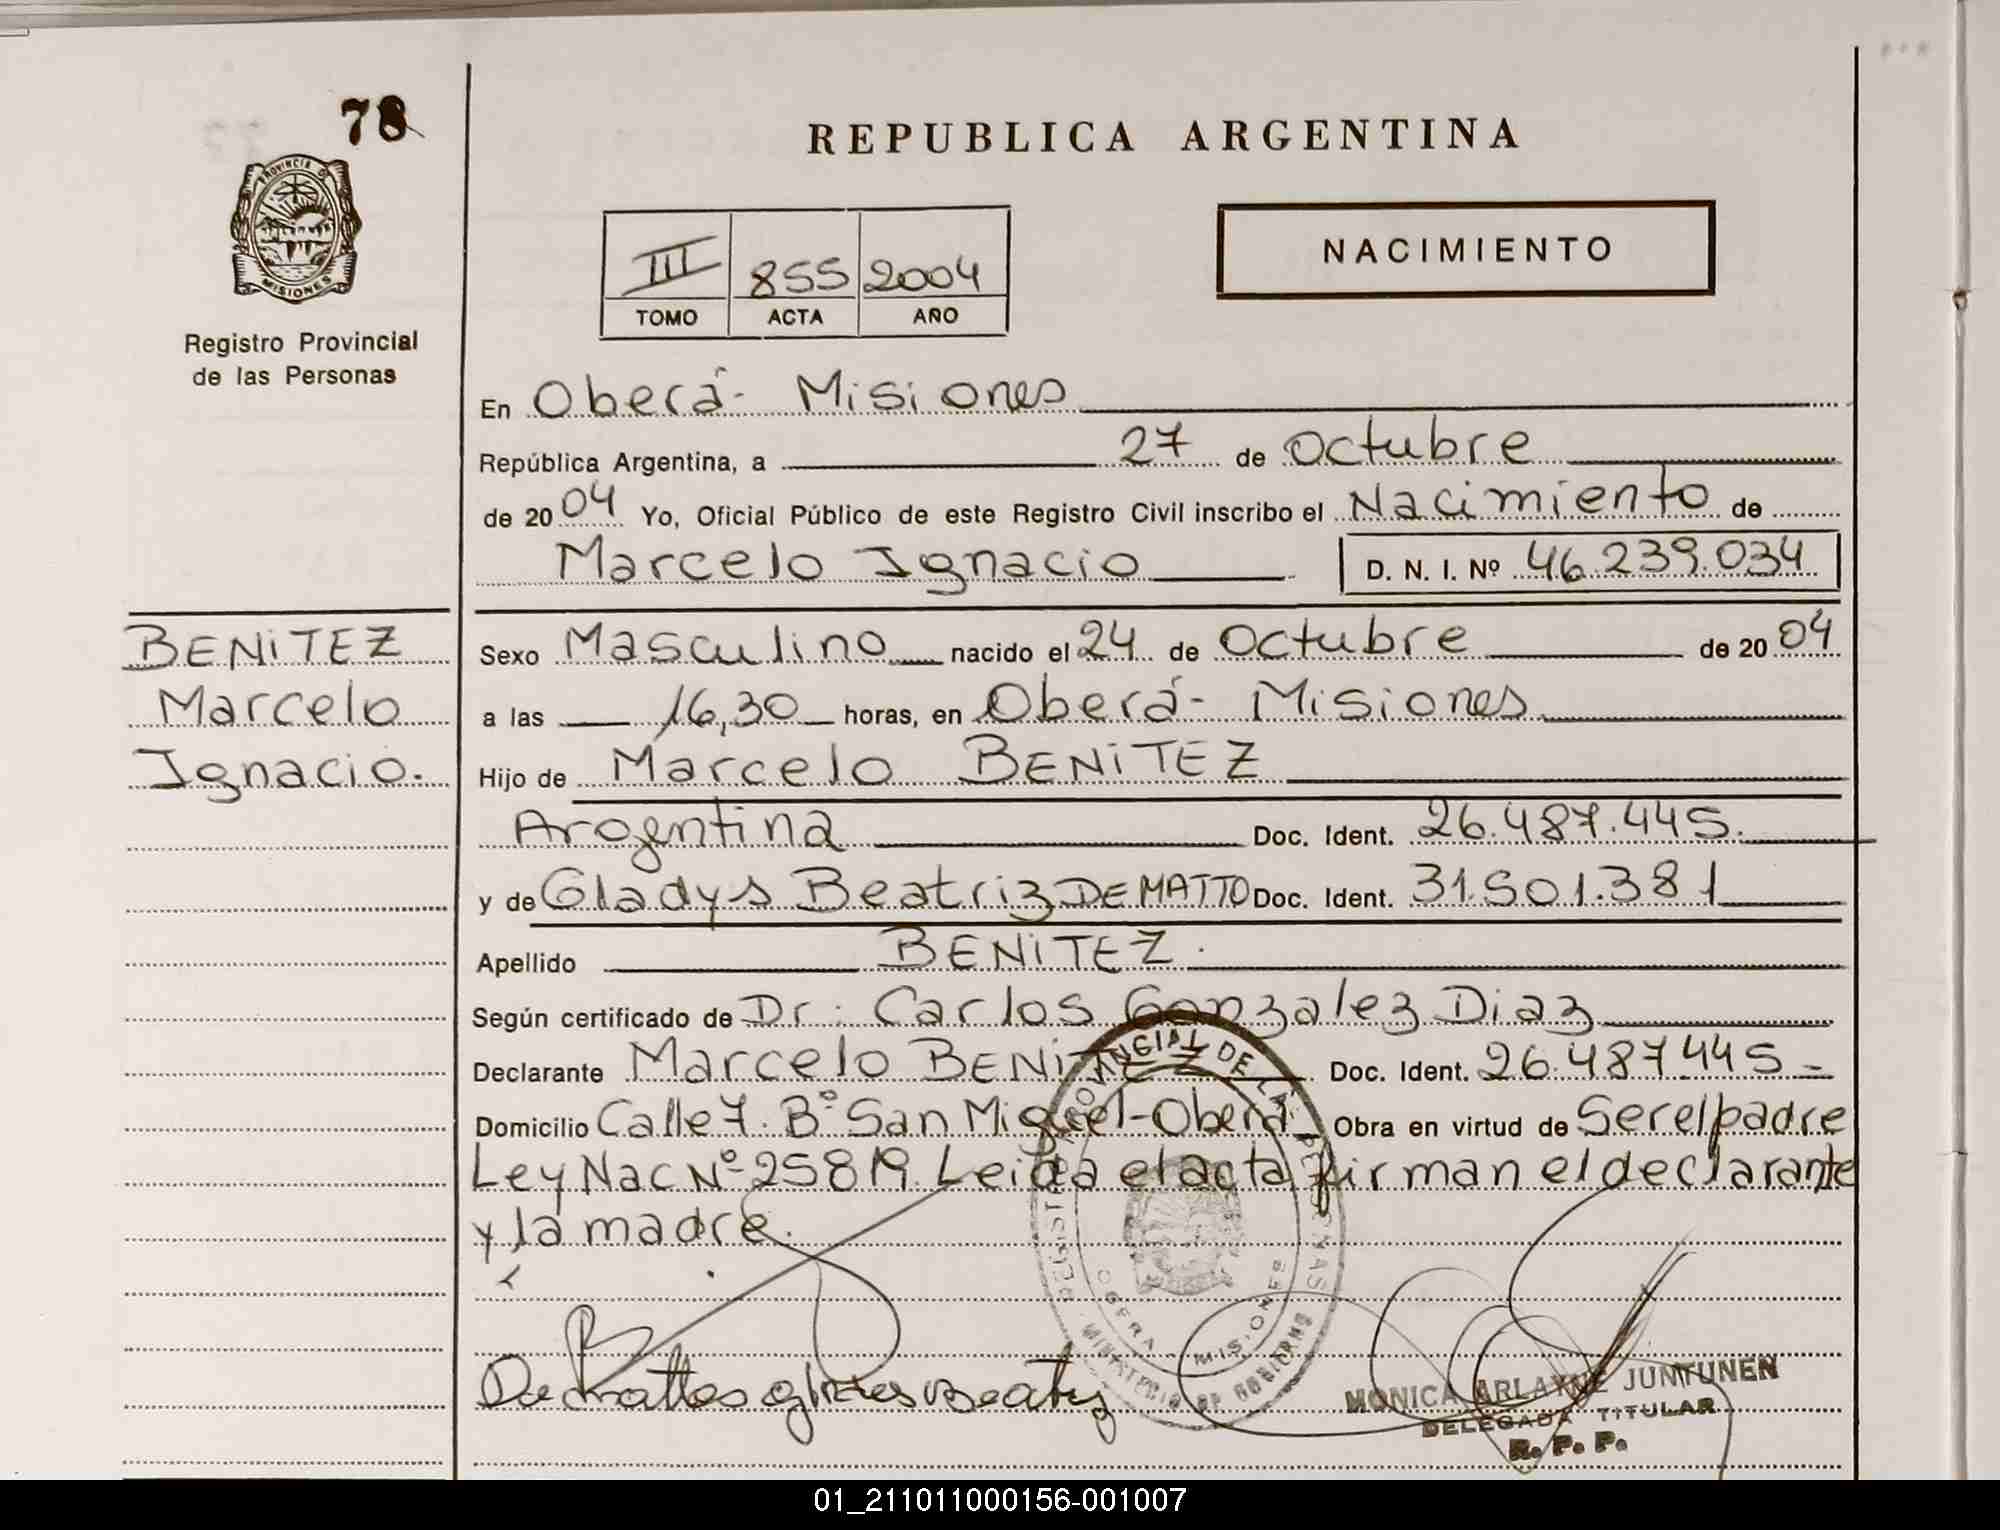 78
REPUBLICA ARGENTINA
PROVINCIA DE
MISIONES
Registro Provincial
de las Personas
NACIMIENTO
III 855 2004
TOMO ACTA AÑO
En Oberá- Misiones
República Argentina, a 27 de Octubre
de 2004 Yo, Oficial Público de este Registro Civil inscribo el Nacimiento de
Marcelo Ignacio D. N. I. Nº 46.239.034
BENITEZ
Marcelo
Ignacio.
Sexo Masculino nacido el 24 de Octubre de 2004
a las 16,30 horas, en Oberá- Misiones
Hijo de Marcelo BENITEZ
Argentina Doc. Ident. 26.487.445.
y de Gladys Beatriz DE MATTO Doc. Ident. 31.501.381
Apellido BENITEZ.
Según certificado de Dr: Carlos Gonzalez Diaz
Declarante Marcelo BENITEZ Doc. Ident. 26.487.445
Domicilio Calle 7. Bº San Miguel-Oberá Obra en virtud de Ser el padre
Ley Nac Nº 25819. Leida el acta firman el declarante
y la madre.
MINISTERIO DE GOBIERNO
OBERA - MISIONES
MONICA ARLAYNE JUNTUNEN
DELEGADA TITULAR
R. P. P.
01_211011000156-001007